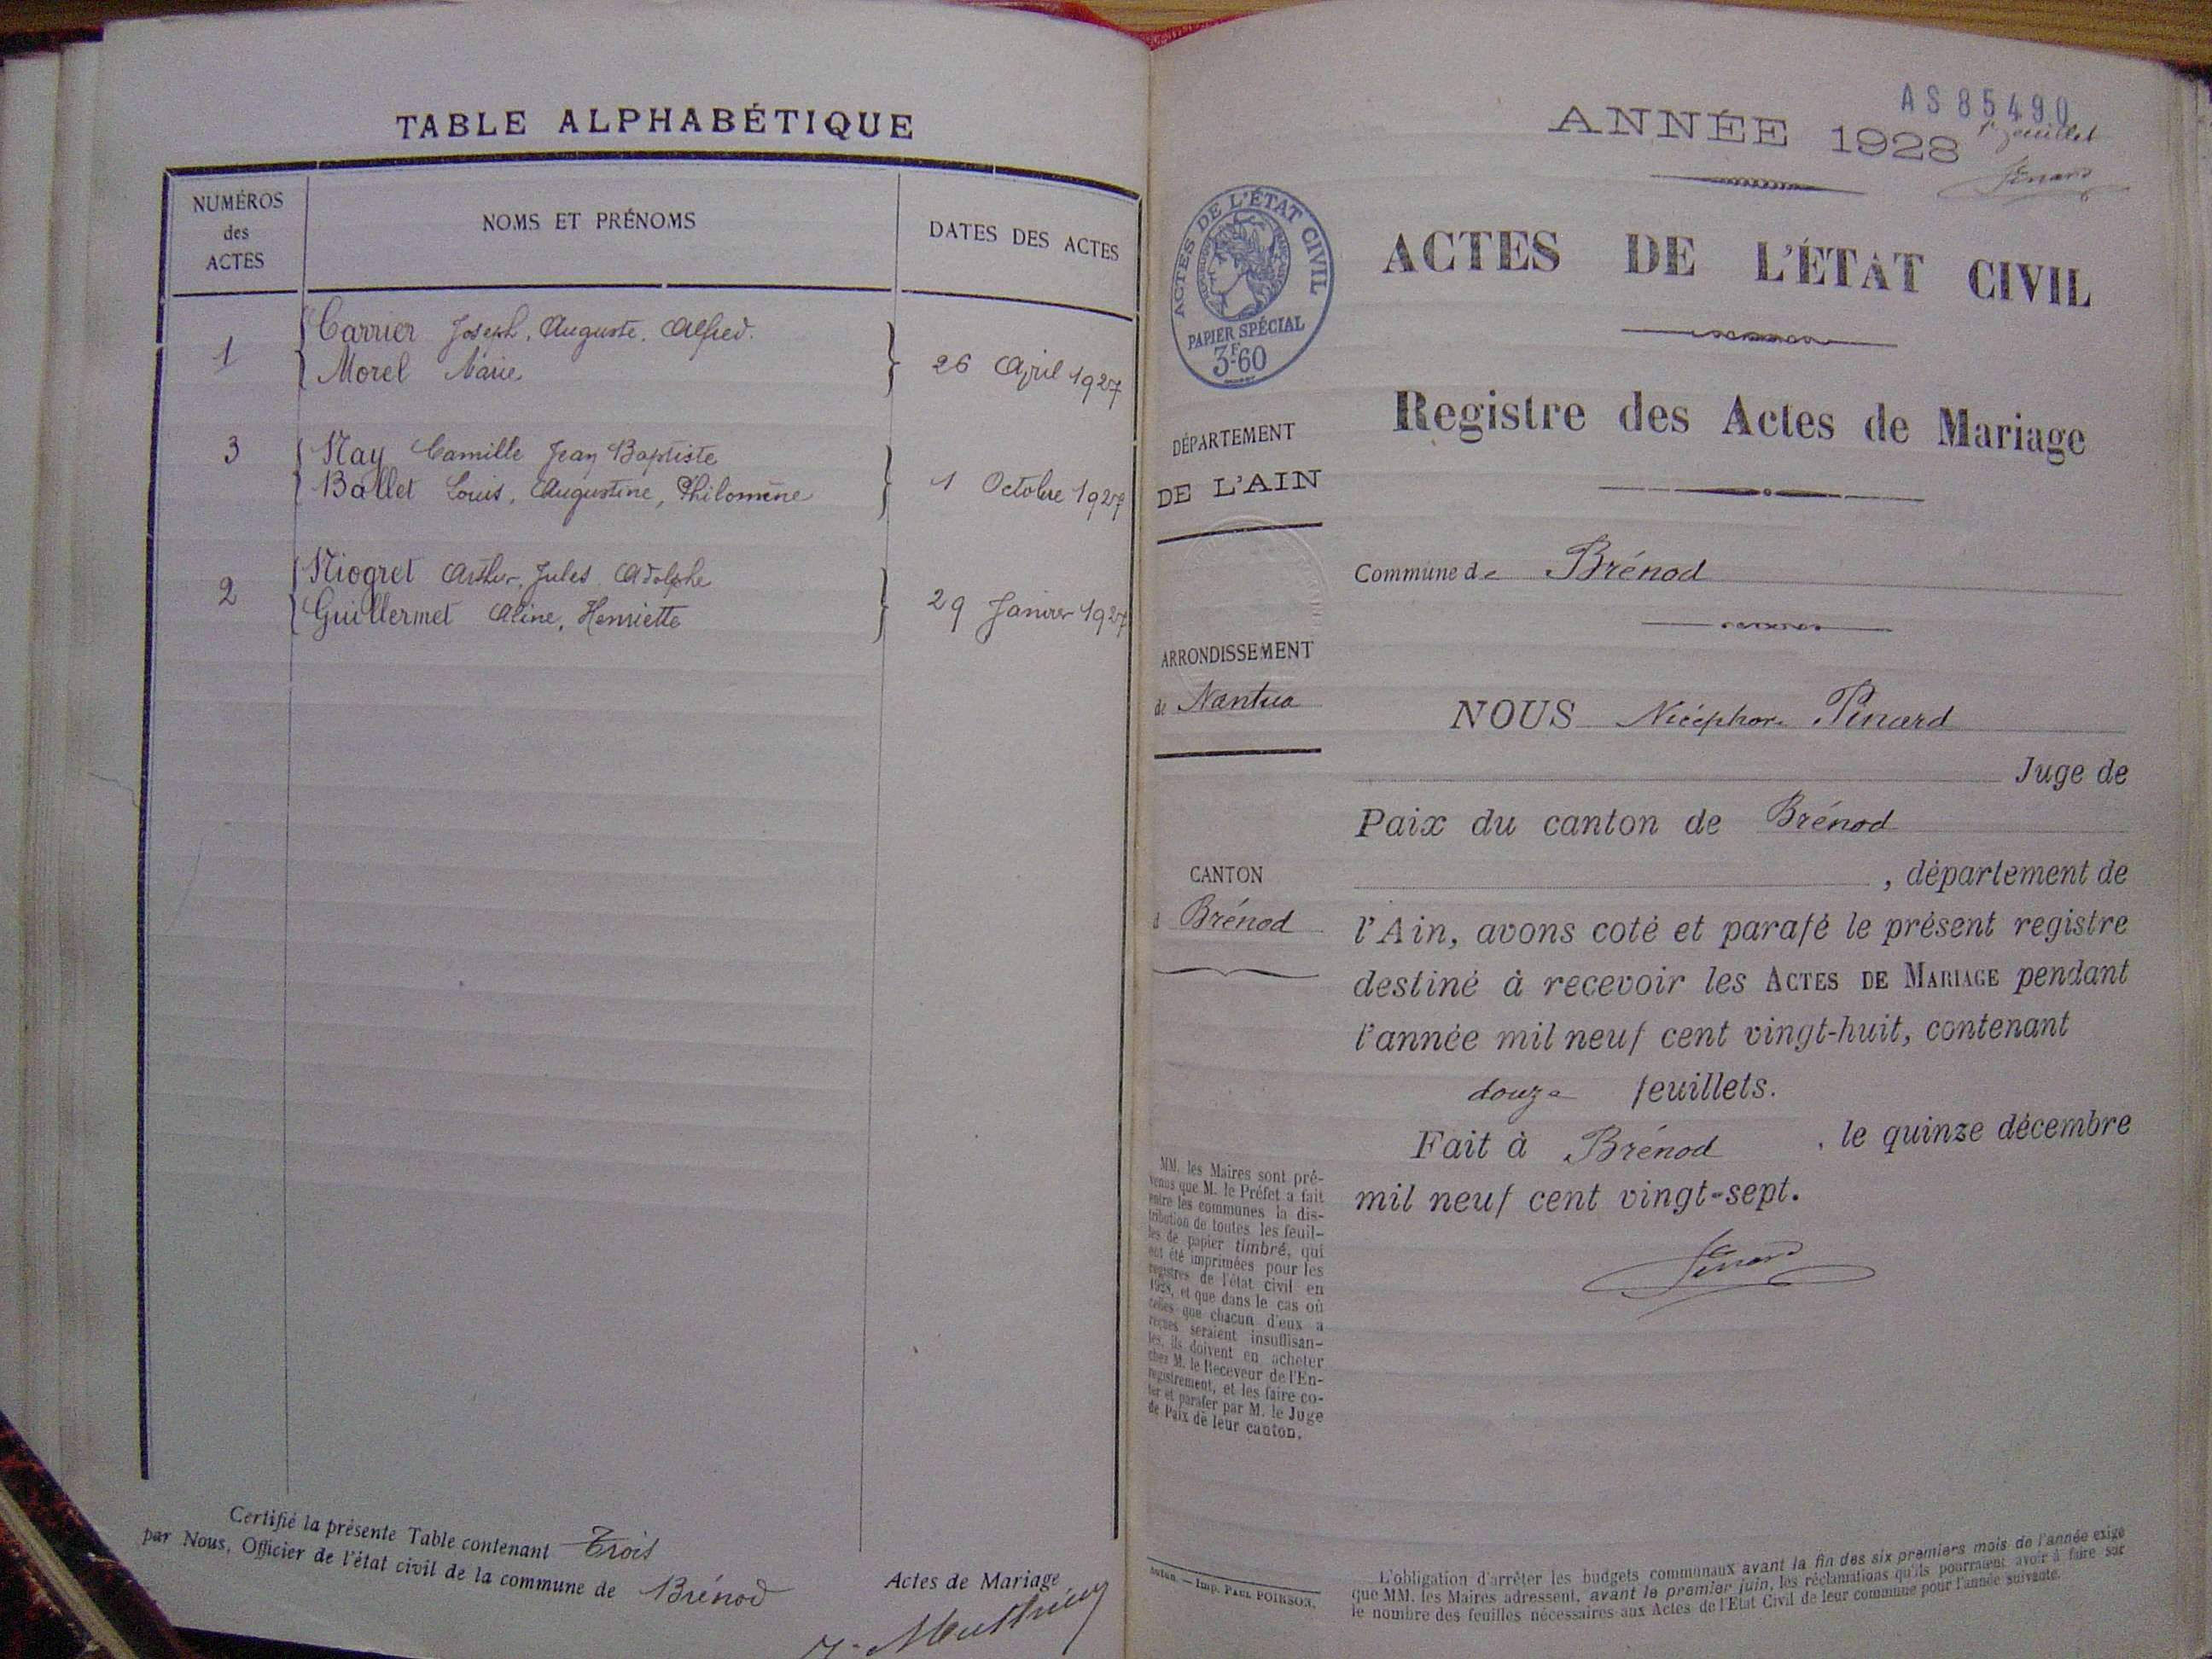 TABLE ALPHABÉTIQUE
NUMÉROS
des
ACTES
NOMS ET PRÉNOMS
DATES DES ACTES
1
Carrier Joseph, Auguste, Alfred.
Morel Marie
26 April 1927
3
Nay Camille Jean Baptiste
Ballet Louis, Augustine, Philomène
1 Octobre 1927
2
Niogret Arthur, Jules Adolphe
Guillermet Aline, Henriette
29 Janvier 1927
Certifié la présente Table contenant Trois
Actes de Mariage
par Nous, Officier de l'état civil de la commune de Brénod
AS 85490
ANNÉE 1928
1er feuillet
Pinard
ACTES DE L'ÉTAT CIVIL
PAPIER SPÉCIAL
3F60
ACTES DE L'ÉTAT CIVIL
Registre des Actes de Mariage
DÉPARTEMENT
DE L'AIN
Commune de Brénod
ARRONDISSEMENT
de Nantua
NOUS Nicéphore Pinard
Juge de
Paix du canton de Brénod
CANTON
d Brénod
, département de
l'Ain, avons coté et parafé le présent registre
destiné à recevoir les ACTES DE MARIAGE pendant
l'année mil neuf cent vingt-huit, contenant
douze feuillets.
Fait à Brénod , le quinze décembre
mil neuf cent vingt-sept.
Pinard
MM. les Maires sont pré-
venus que M. le Préfet a fait
entre les communes la dis-
tribution de toutes les feuil-
les de papier timbré, qui
ont été imprimées pour les
registres de l'état civil en
1928, et que dans le cas où
celles que chacun d'eux a
reçues seraient insuffisan-
tes, ils doivent en acheter
chez M. le Receveur de l'En-
registrement, et les faire co-
ter et parafer par M. le Juge
de Paix de leur canton.
— Imp. PAUL POIRSON.
L'obligation d'arrêter les budgets communaux avant la fin des six premiers mois de l'année exige
que MM. les Maires adressent, avant le premier juin, les réclamations qu'ils pourraient avoir à faire sur
le nombre des feuilles nécessaires aux Actes de l'Etat Civil de leur commune pour l'année suivante.